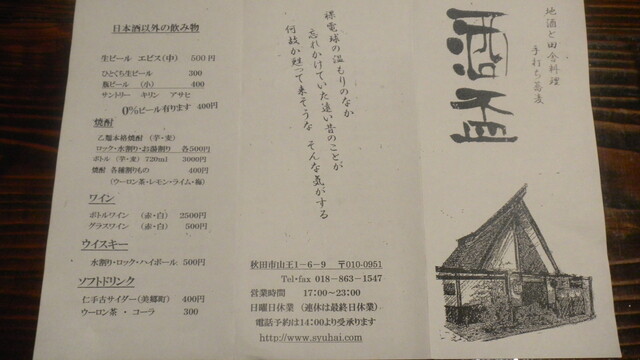 地酒と田舎料理
手打ち蕎麦
酒盃
裸電球の温もりのなか
忘れかけていた遠い昔のことが
何故か甦って来そうな　そんな気がする
秋田市山王1－6－9　〒010-0951
Tel・fax 018－863－1547
営業時間　17:00～23:00
日曜日休業（連休は最終日休業）
電話予約は14:00より受承ります
http://www.syuhai.com
日本酒以外の飲み物
生ビール　エビス（中）　500円
ひとくち生ビール　300
瓶ビール　（小）　400
サントリー　キリン　アサヒ
0%ビール有ります　400円
焼酎
乙類本格焼酎（芋・麦）
ロック・水割り・お湯割り　各500円
ボトル（芋・麦）720ml　3000円
焼酎　各種割りもの　400円
（ウーロン茶・レモン・ライム・梅）
ワイン
ボトルワイン　（赤・白）　2500円
グラスワイン　（赤・白）　500円
ウイスキー
水割り・ロック・ハイボール　500円
ソフトドリンク
仁手古サイダー（美郷町）　400円
ウーロン茶・コーラ　300